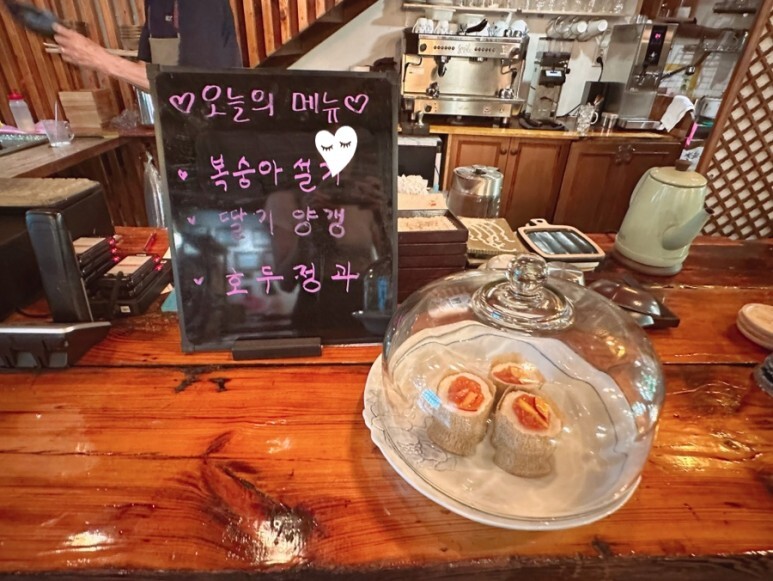 ♡오늘의 메뉴♡
복숭아설기
딸기양갱
호두정과